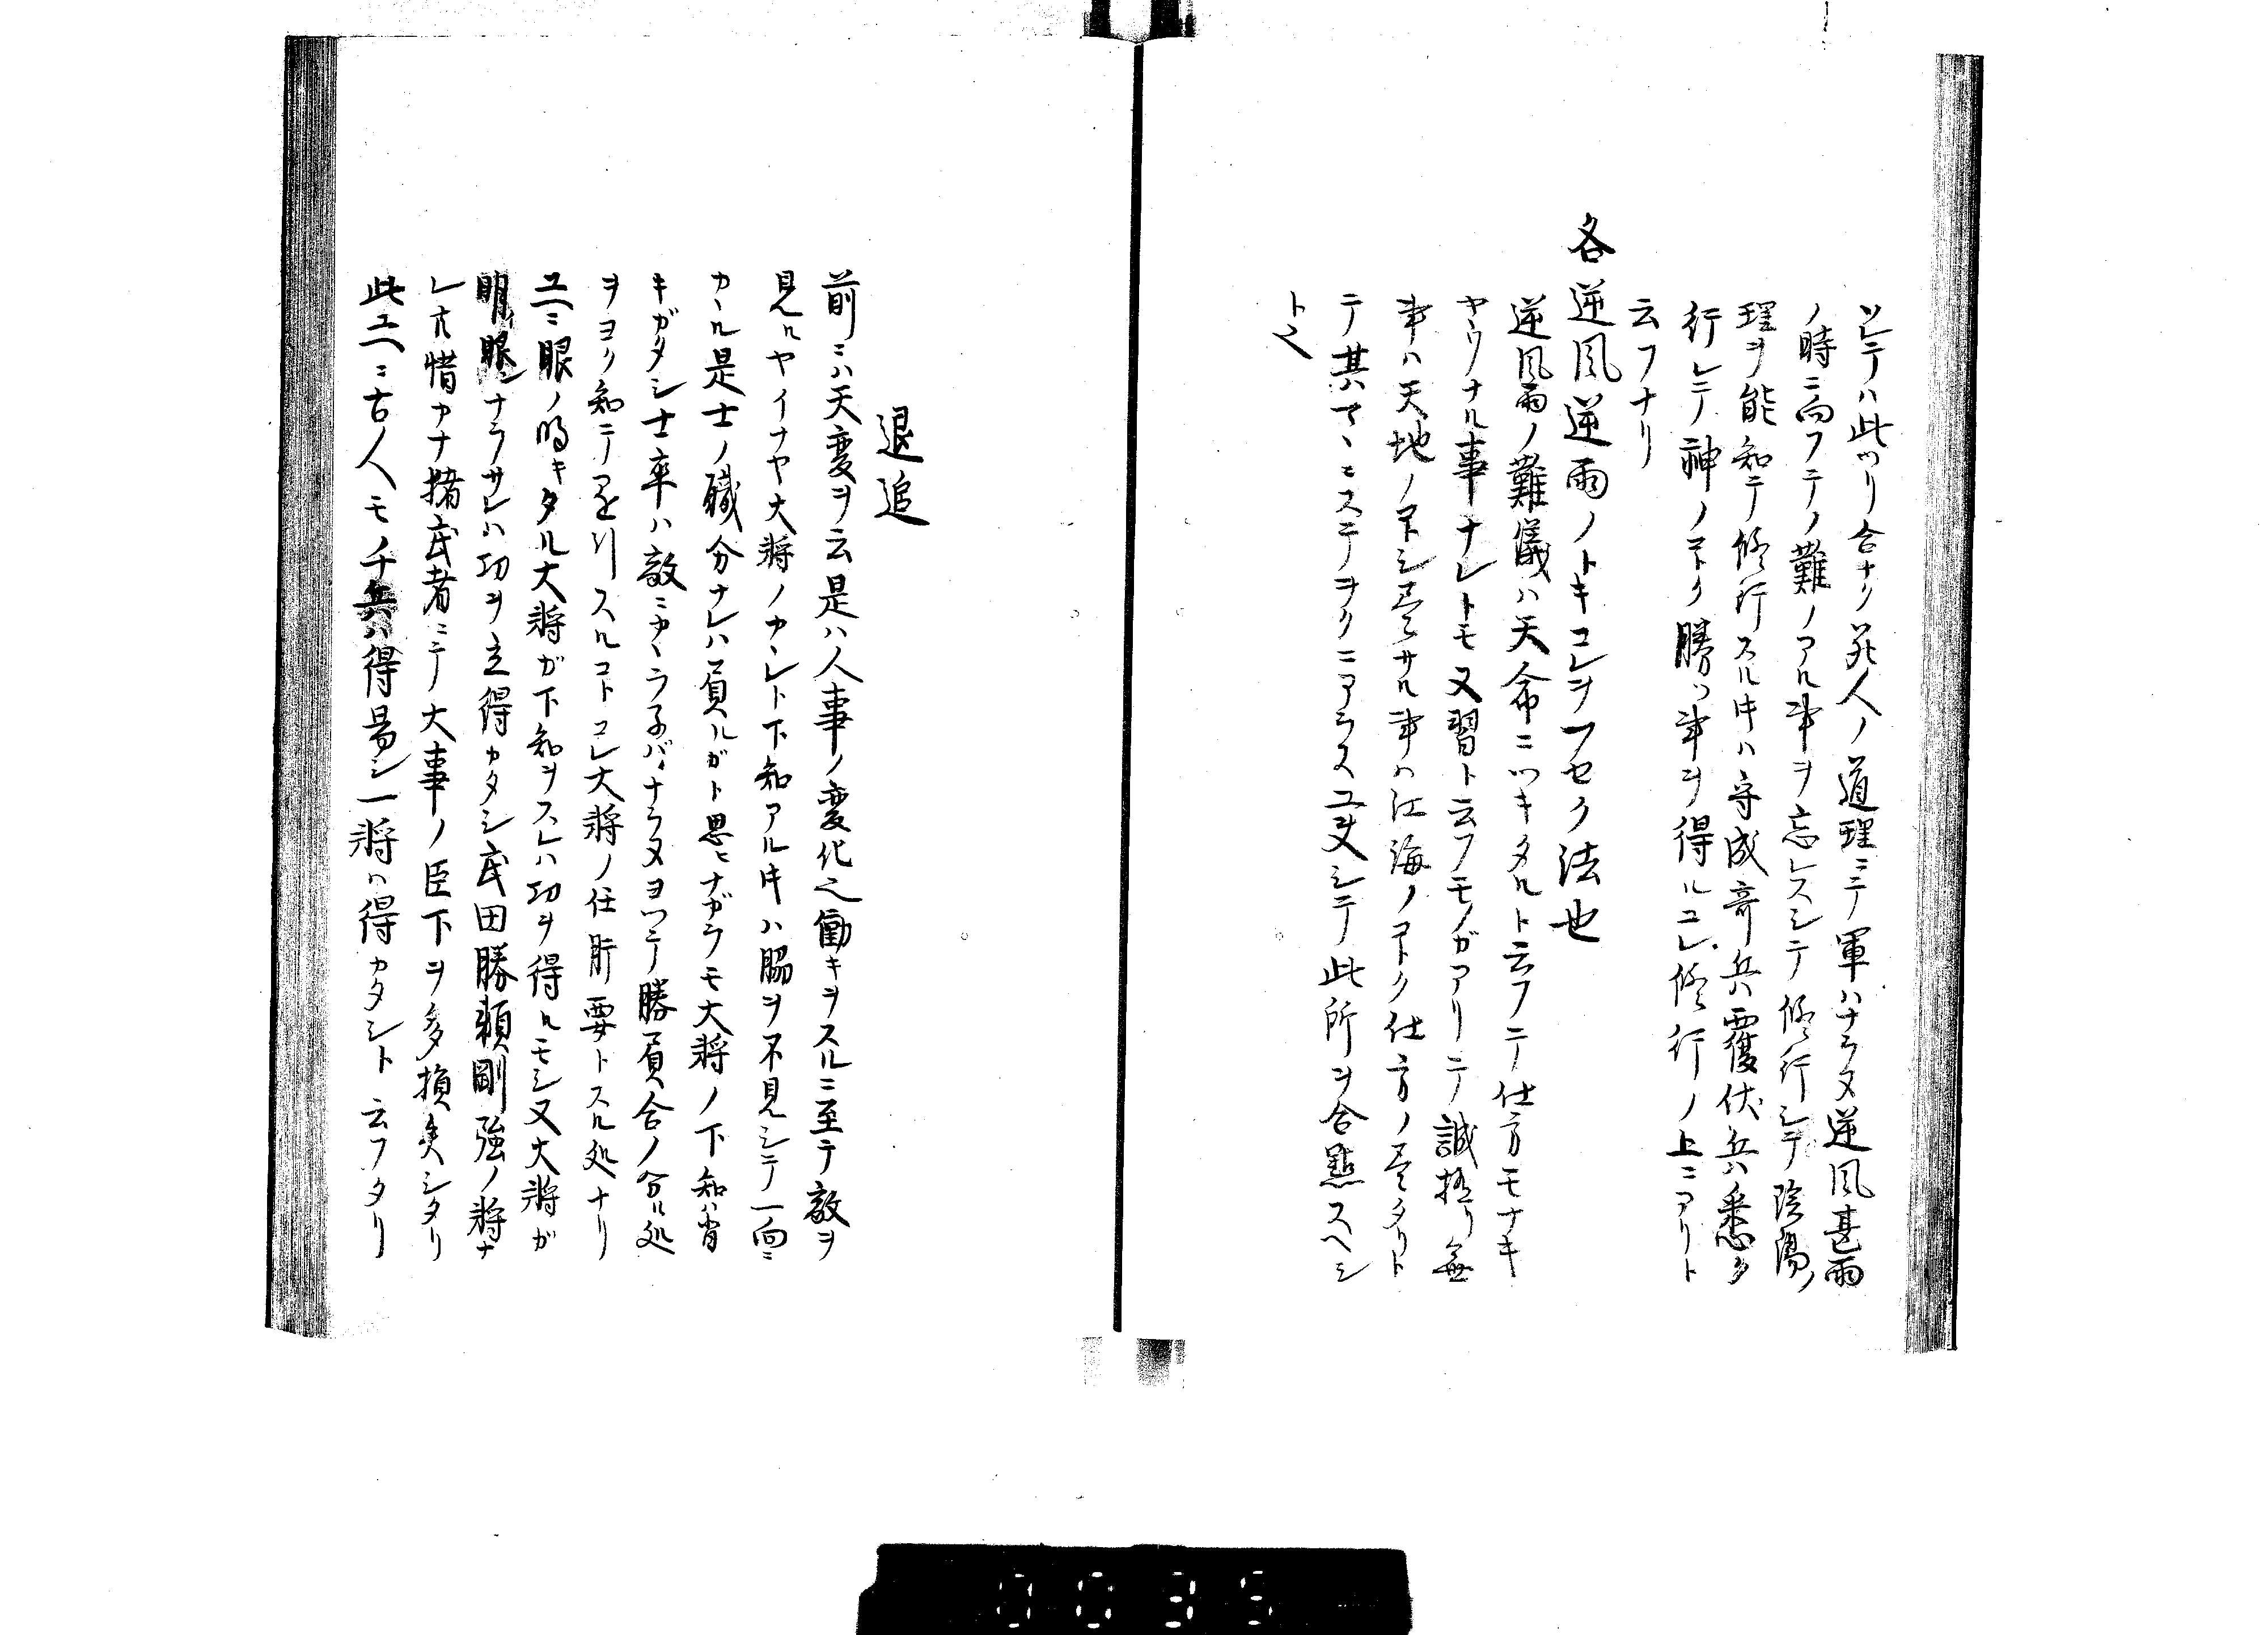 ソレテハ此ツリ合ナリ死人ノ道理ニテ軍ハナラヌ逆風甚雨
ノ時ニ向フテノ難ノアル事ヲ忘レスシテ修行シテ陰陽ノ
理ヲ能知テ修行スル時ハ守成奇兵覆伏兵悉ク
行レテ神ノコトク勝ツ事ヲ得ルコレ修行ノ上ニアリト
云フナリ
各逆風逆雨ノトキコレヲフセク法也
逆風雨ノ難儀ハ天命ニツキタルト云フテ仕方モナキ
ヤウナル事ナレトモ又習ト云フモノガアリテ誠極リ無
事ハ天地ノコトシ尽サル事ハ江海ノコトク仕方ノ尽タリト
テ其ハマヽニステヲクニアラス工夫シテ此所ヲ合點スヘシ
ト也
退追
前ニハ天変ヲ云是ハ人事ノ変化之働キヲスルニ至テ敵ヲ
見ルヤイナヤ大将ノカヽレト下知アル時ハ脇ヲ不見シテ一向ニ
カヽル是士ノ職分ナレハ負ルガト思ヒナガラモ大将ノ下知ハ背
キガタシ士卒ハ敵ニカヽラ子バナラヌヨツテ勝負合ノ分ル処
ヲヨク知テ引スルコトコレ大将ノ任肝要トスル処ナリ
ユヘニ眼ノ明キタル大将ガ下知ヲスレハ功ヲ得ルモシ又大将ガ
明眼ナラサレハ功ヲ立得カタシ武田勝頼剛強ノ将ナ
レ共惜カナ猪武者ニテ大事ノ臣下ヲ多損失シタリ
此ユヘニ古人モ千兵ハ得易シ一将ハ得カタシト云フタリ